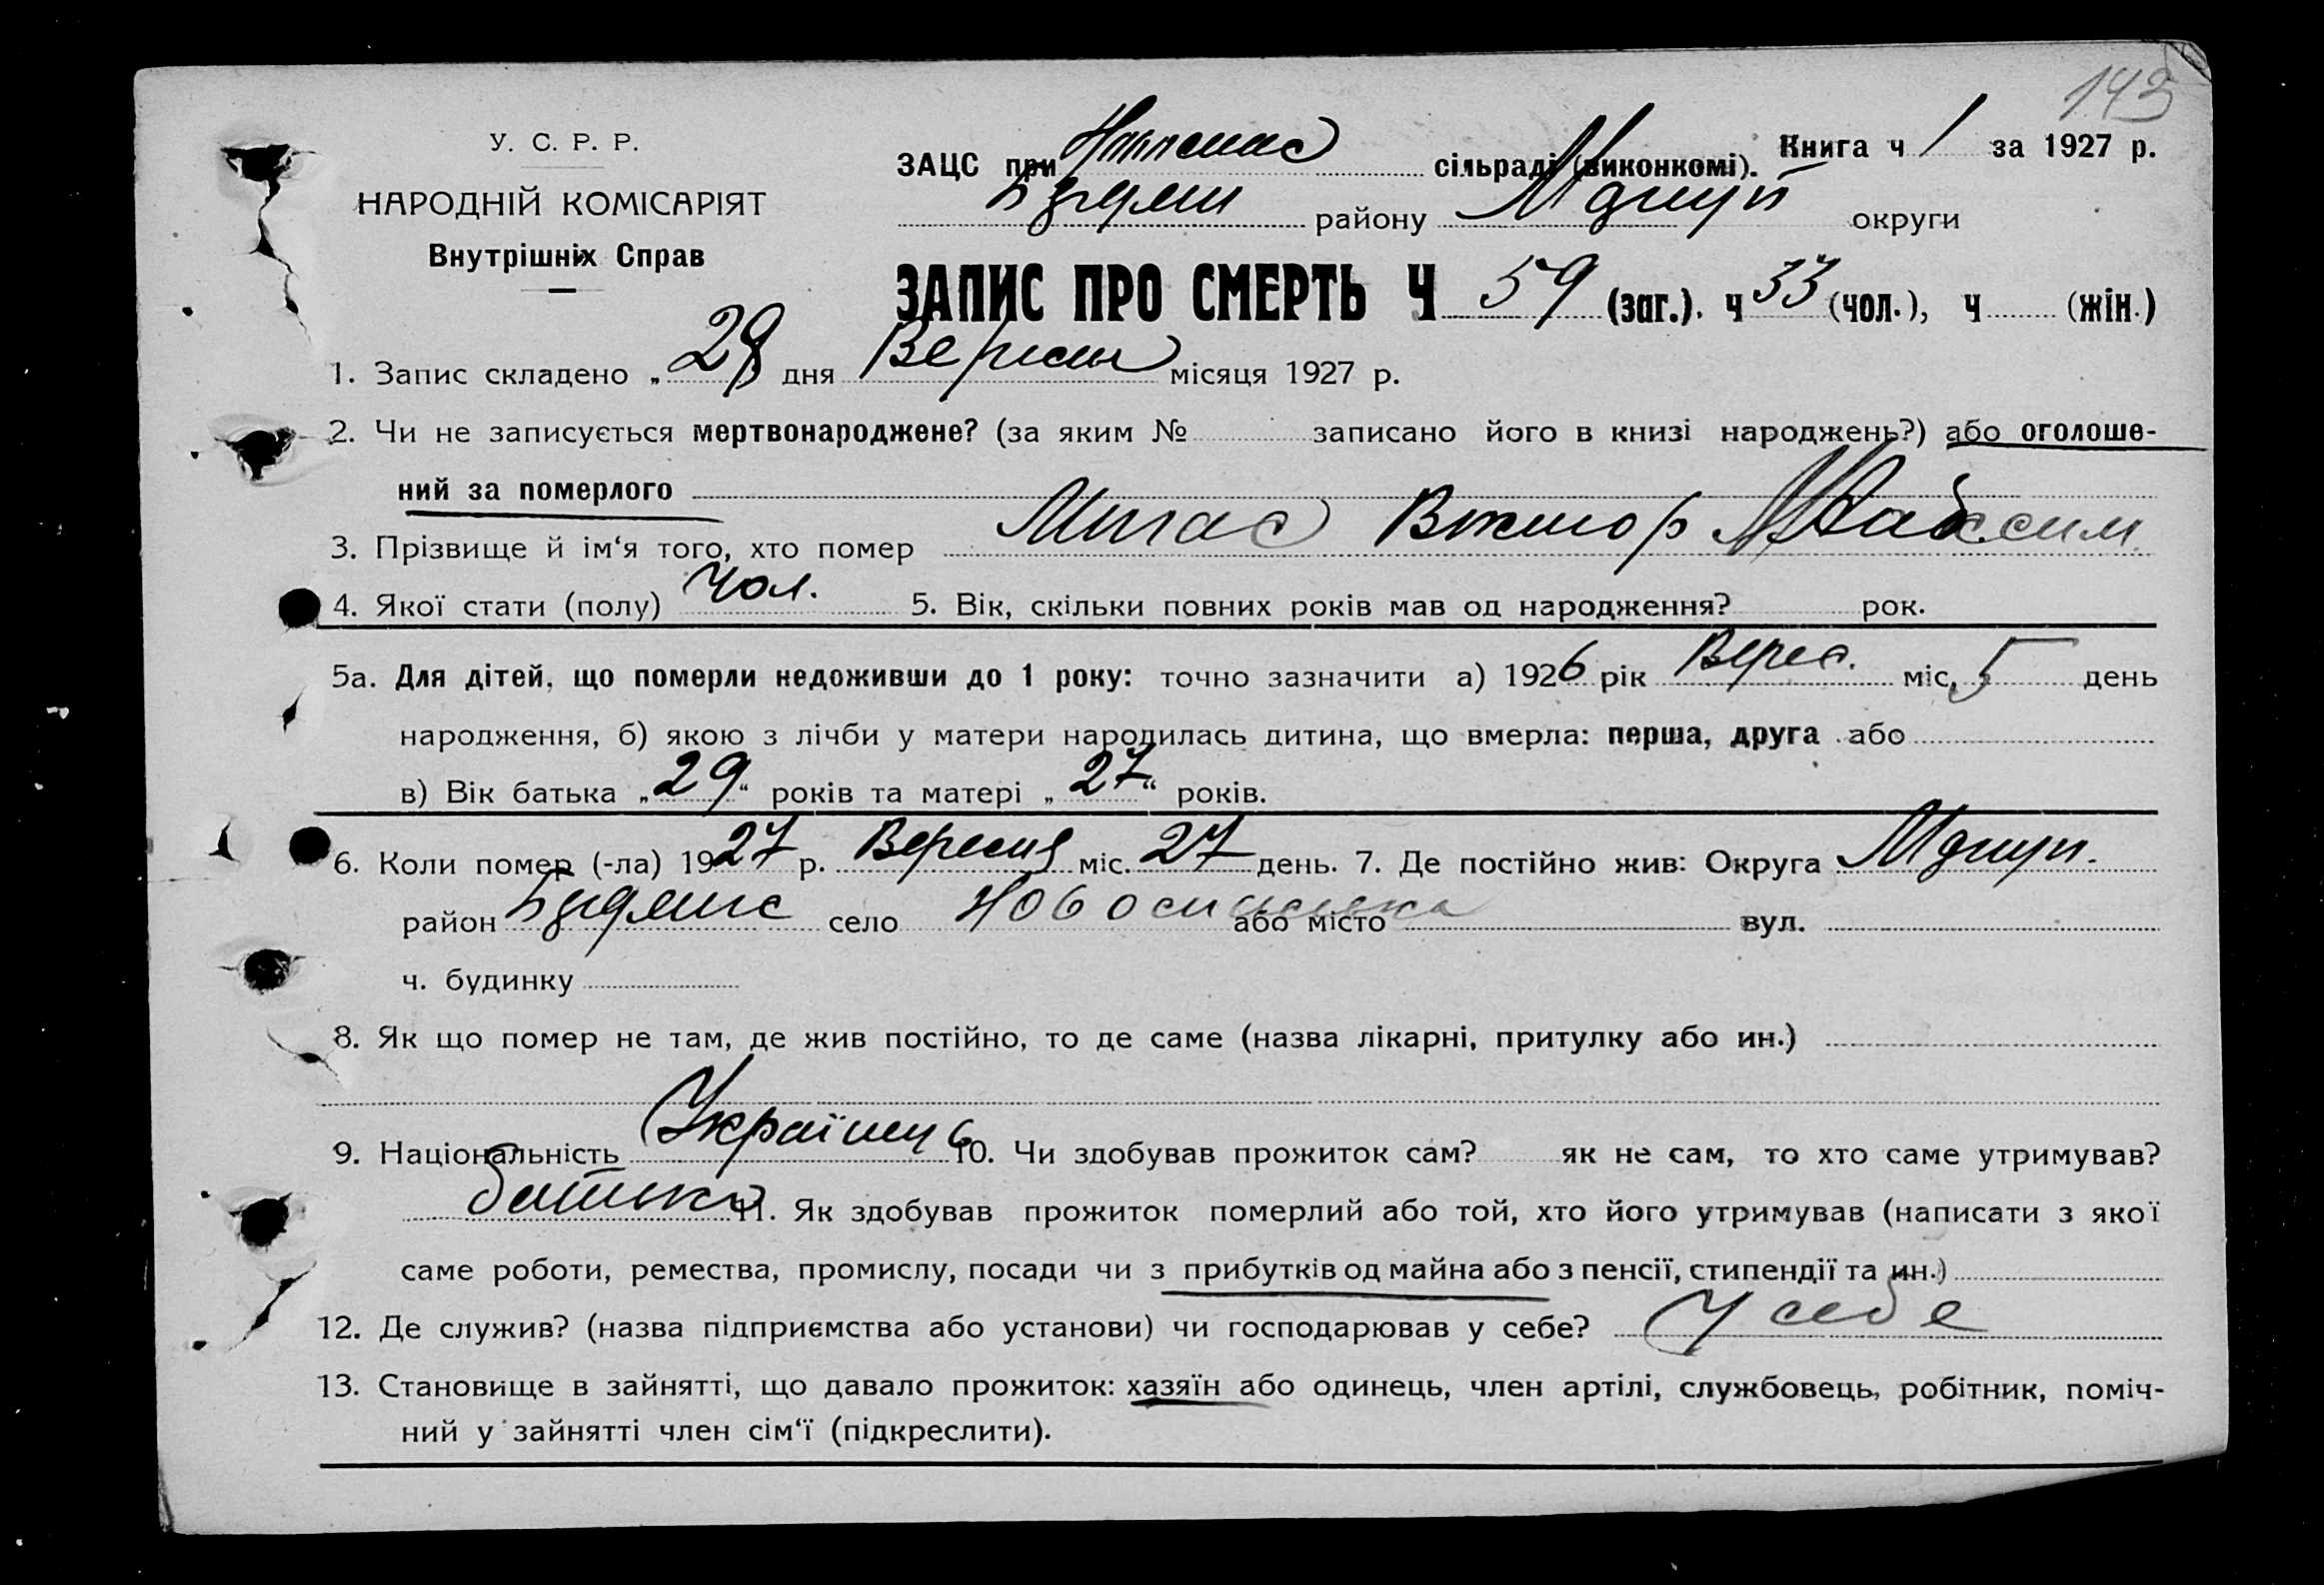 143
У. С. Р. Р.
НАРОДНІЙ КОМІСАРІЯТ
Внутрішніх Справ
ЗАЦС при сільраді (виконкомі). Книга ч 1 за 1927 р.
району округи
ЗАПИС ПРО СМЕРТЬ Ч 59 (заг.). ч 33 (чол.), ч (жін.)
1. Запис складено „ 28 дня Вересня місяця 1927 р.
2. Чи не записується мертвонароджене? (за яким № записано його в книзі народжень?) або оголоше-
ний за померлого
3. Прізвище й ім‘я того, хто помер Виктор Максим.
4. Якої стати (полу) Чол. 5. Вік, скільки повних років мав од народження? рок.
5а. Для дітей, що померли недоживши до 1 року: точно зазначити а) 1926 рік Верес. міс. 5 день
народження, б) якою з лічби у матери народилась дитина, що вмерла: перша, друга або
в) Вік батька „29“ років та матері „27“ років.
6. Коли помер (-ла) 1927 р. Вересня міс. 27 день. 7. Де постійно жив: Округа
район село або місто вул.
ч. будинку
8. Як що помер не там, де жив постійно, то де саме (назва лікарні, притулку або ин.)
9. Національність Українець 10. Чи здобував прожиток сам? як не сам, то хто саме утримував?
батько 11. Як здобував прожиток померлий або той, хто його утримував (написати з якої
саме роботи, ремества, промислу, посади чи з прибутків од майна або з пенсії, стипендії та ин.)
12. Де служив? (назва підприємства або установи) чи господарював у себе? У себе
13. Становище в зайнятті, що давало прожиток: хазяїн або одинець, член артілі, службовець, робітник, поміч-
ний у зайнятті член сім‘ї (підкреслити).